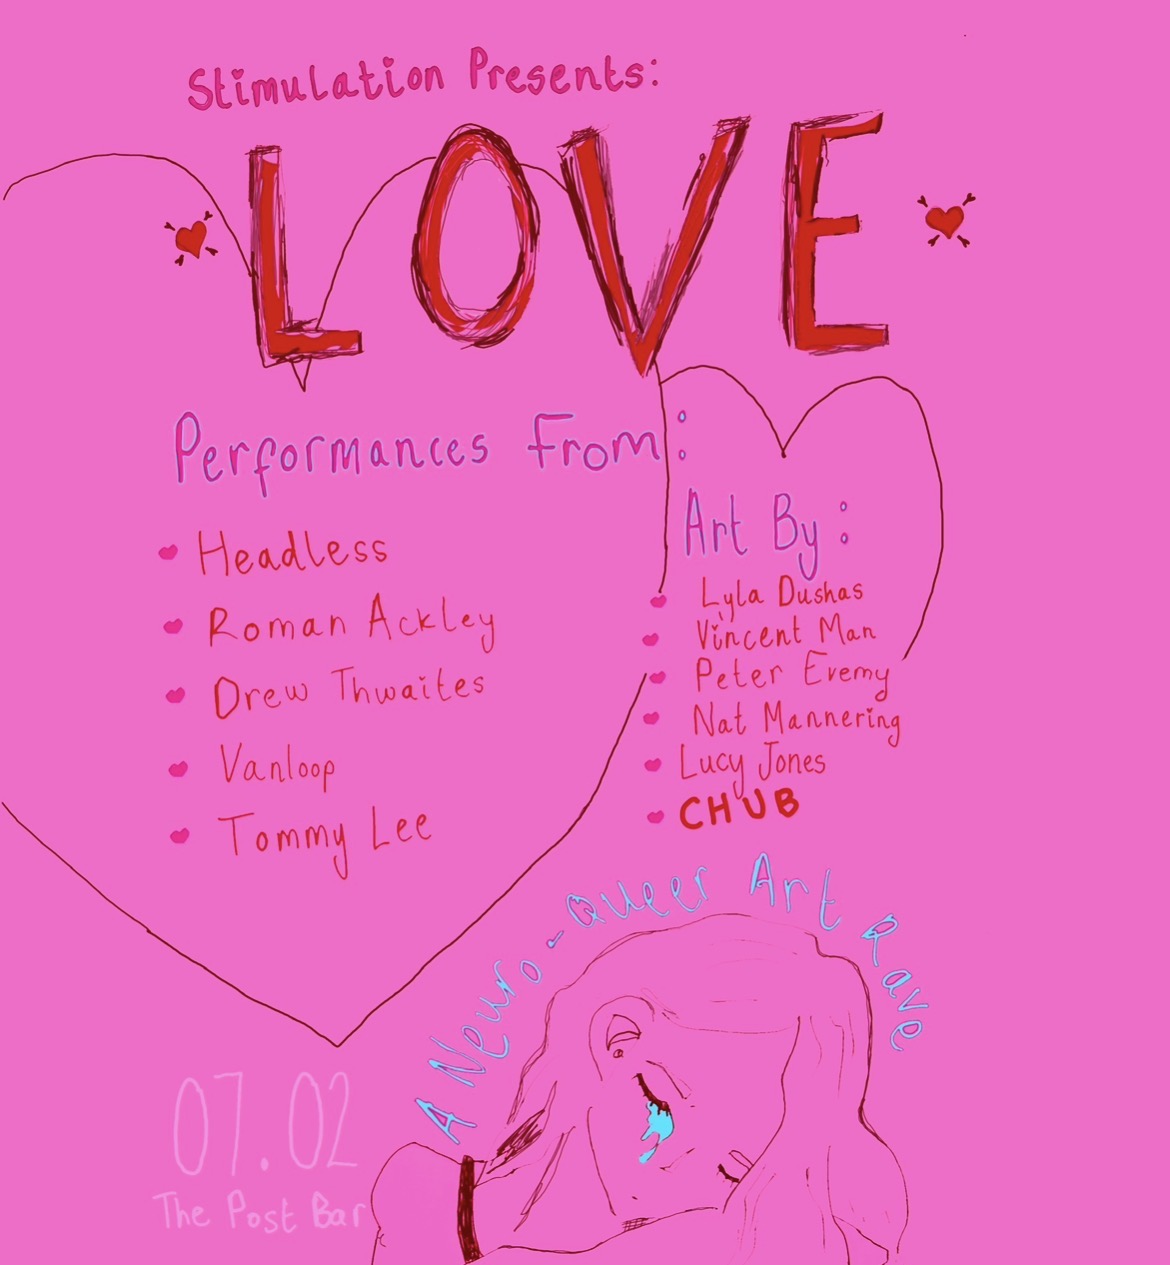 Stimulation Presents:
LOVE
Performances From:
Headless
Roman Ackley
Drew Thwaites
Vanloop
Tommy Lee
Art By:
Lyla Dushas
Vincent Man
Peter Evemy
Nat Mannering
Lucy Jones
CHUB
A Neuro-Queer Art Rave
07.02
The Post Bar